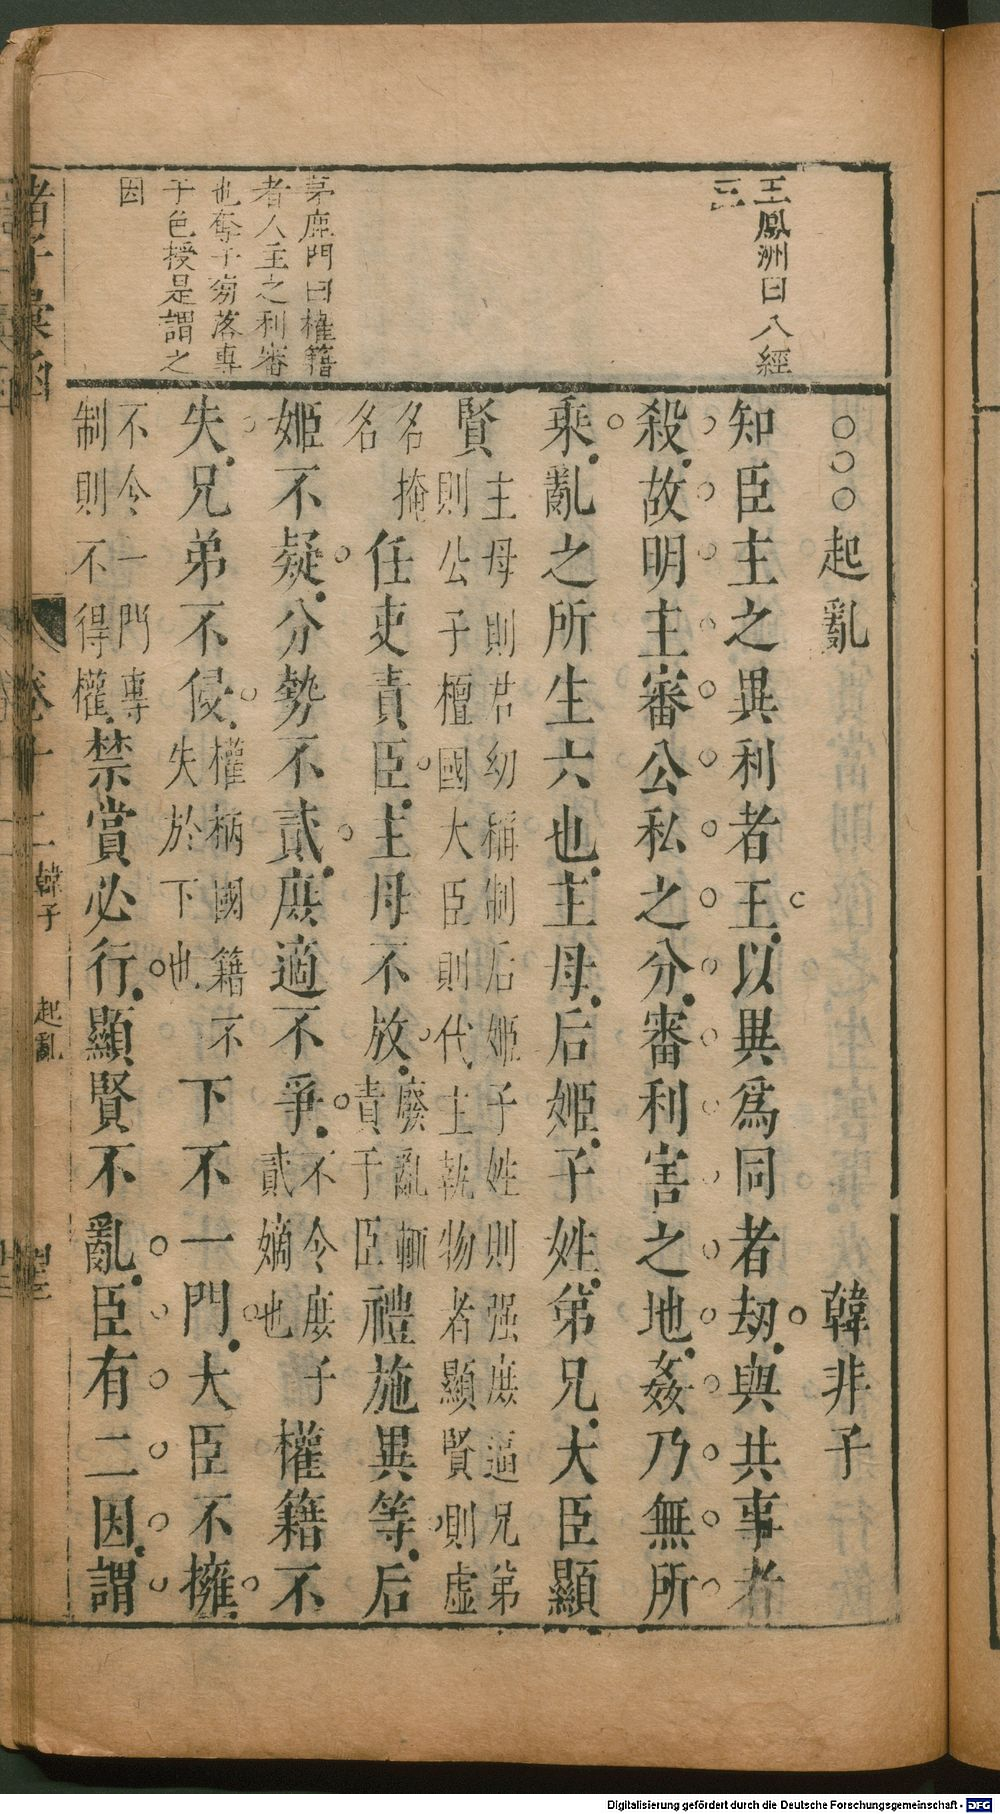 王鳳洲曰八經
三
茅鹿門曰權籍
者人主之利審
也奪子旁落專
于色授是謂之
因
○○○起亂 韓非子
知臣主之異利者王以異爲同者刼與共事者
殺故明主審公私之分審利害之地姦乃無所
乘亂之所生六也主母后姬子姓弟兄大臣顯
賢
主母則君幼稱制后姬子姓則强庶逼兄弟
則公子檀國大臣則代主執物者顯賢則虚
名掩
名
任吏責臣主母不放
廢亂輒
責于臣
禮施異等后
姬不疑分勢不貳庶適不爭
不令庶子
貳嫡也
權籍不
失兄弟不侵
權柄國籍不
失於下也
下不一門大臣不擁
不令一門專
制則不得權
禁賞必行顯賢不亂臣有二因謂
諸子彙函 卷十二 韓子 起亂
Digitalisierung gefördert durch die Deutsche Forschungsgemeinschaft - DFG